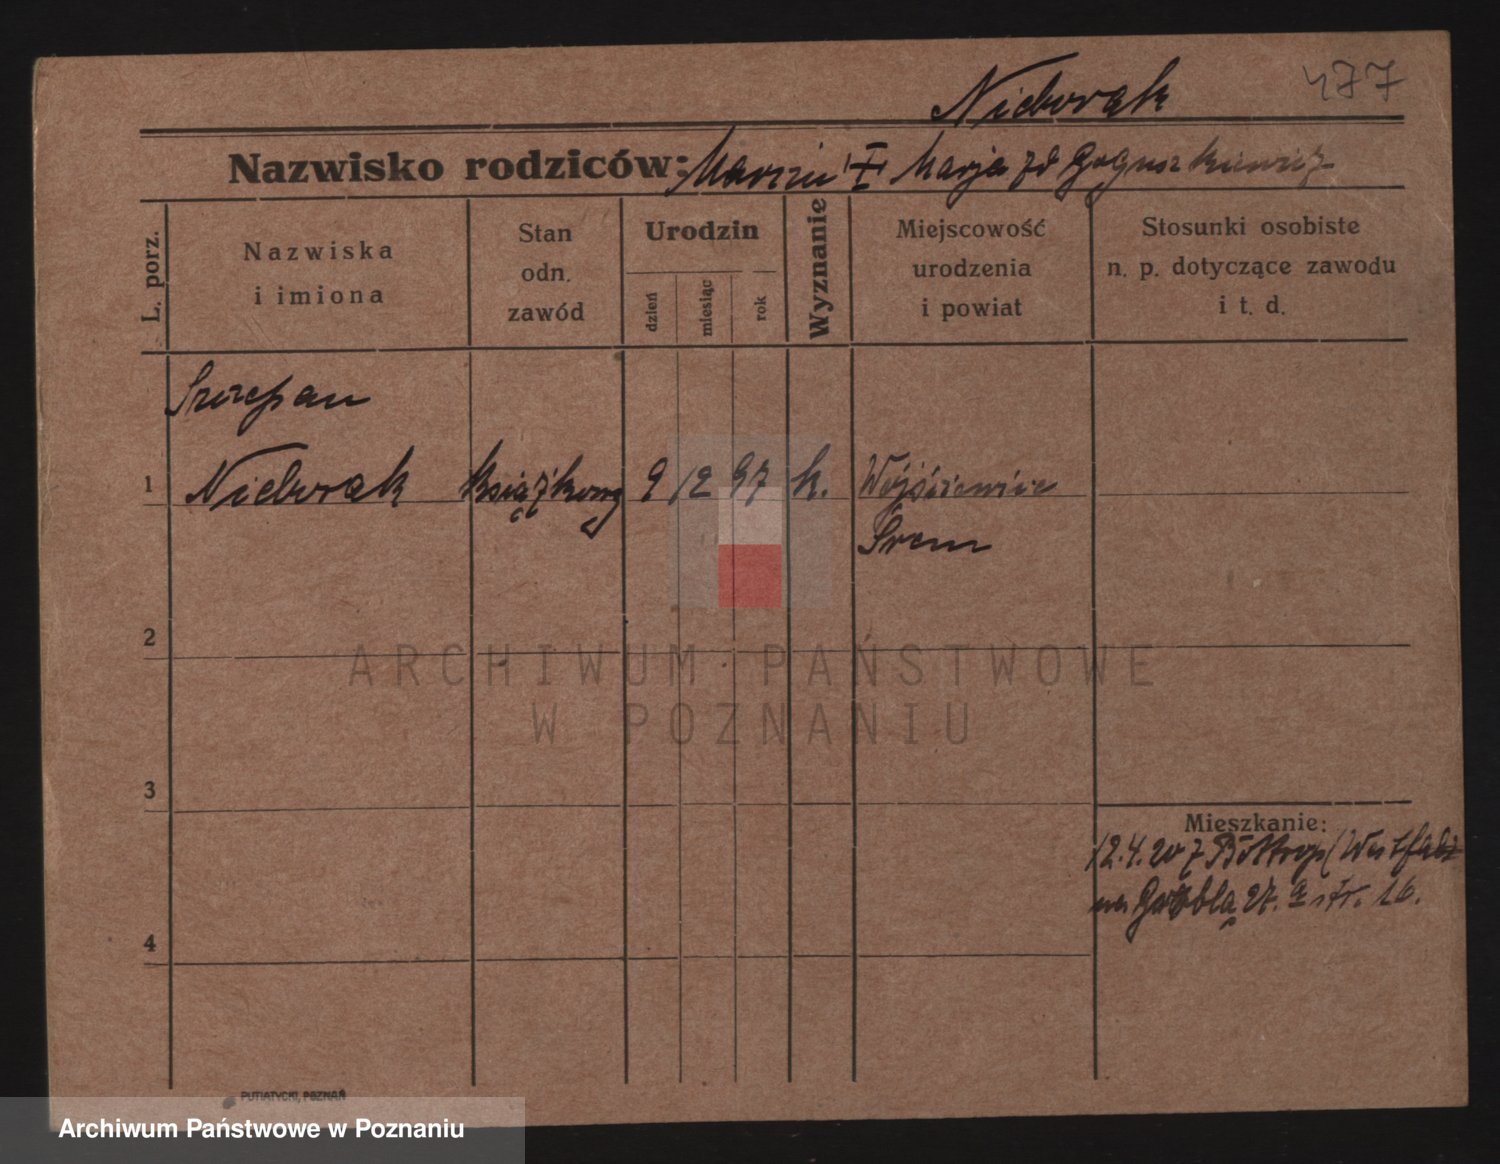 Nieborak 477
Nazwisko rodziców: Marcin I Marja zd
L. porz.
Nazwiska
i imiona
Stan
odn.
zawód
Urodzin
dzień
miesiąc
rok
Wyznanie
Miejscowość
urodzenia
i powiat
Stosunki osobiste
n. p. dotyczące zawodu
i t. d.
Szczepan
1 Nieborak książkowy 9 12 97 k. Wójciechowice
Śrem
2
3
4
Mieszkanie:
12.4.20 z Bottrop (Westfalia
na Groblą 27. a str. 16.
ARCHIWUM PAŃSTWOWE
W POZNANIU
PUTIATYCKI, POZNAŃ
Archiwum Państwowe w Poznaniu